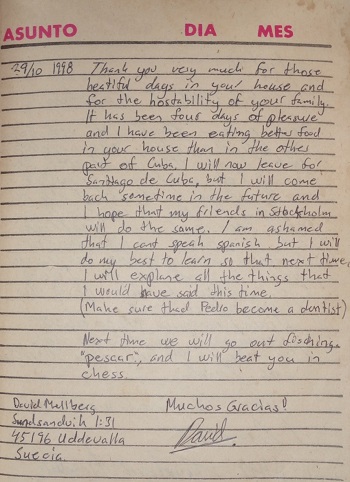 ASUNTO DIA MES
29/10 1998 Thank you very much for those
beatiful days in your house and
for the hostability of your family.
It has been fous days of pleasure
and I have been eating better food
in your house than in the other
part of Cuba. I will now leave for
Santiago de Cuba, but I will come
back sometime in the future and
I hope that my friends in Stockholm
will do the same. I am ashamed
that I cant speak spanish but I will
do my best to learn so that next time
I will explane all the things that
I would have said this time.
(Make sure thad Pedro become a dentist)
Next time we will go out fisching
"pescar", and I will beat you in
chess.
David Mellberg Muchos Gracias!
Sundsandvik 1:31
45196 Uddevalla David
Suecia